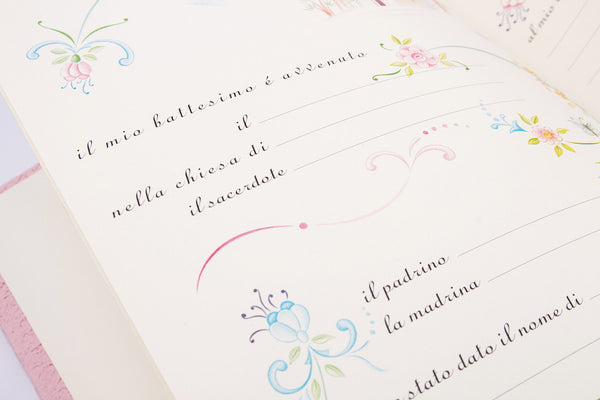 il mio battesimo é avvenuto
il
nella chiesa di
il sacerdote
il padrino
la madrina
stato dato il nome di
al mio